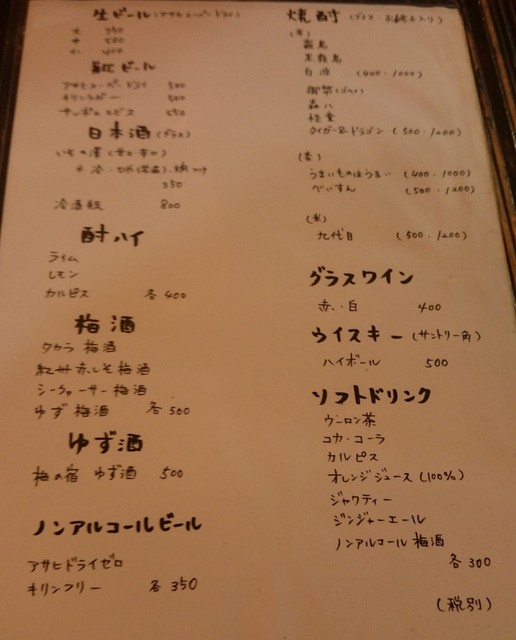 生ビール (アサヒスーパードライ)
大
中 500
小 400
瓶ビール
アサヒスーパードライ 500
キリンラガー 500
サッポロヱビス 550
日本酒 (グラス)
350
冷酒瓶 800
酎ハイ
ライム
レモン
カルピス 各400
梅酒
タカラ 梅酒
紅州赤しそ梅酒
シークァーサー梅酒
ゆず 梅酒 各500
ゆず酒
梅の宿 ゆず酒 500
ノンアルコールビール
アサヒドライゼロ
キリンフリー 各350
焼酎
(芋)
霧島
黒霧島
白波 (400・1000)
森八
タイガー&ドラゴン (500・1200)
(麦)
うまいものはうまい (400・1000)
べいすん (500・1200)
(米)
九代目 (500・1200)
グラスワイン
赤・白 400
ウイスキー (サントリー角)
ハイボール 500
ソフトドリンク
ウーロン茶
コカ・コーラ
カルピス
オレンジジュース (100%)
ジャワティー
ジンジャーエール
ノンアルコール梅酒
各300
(税別)